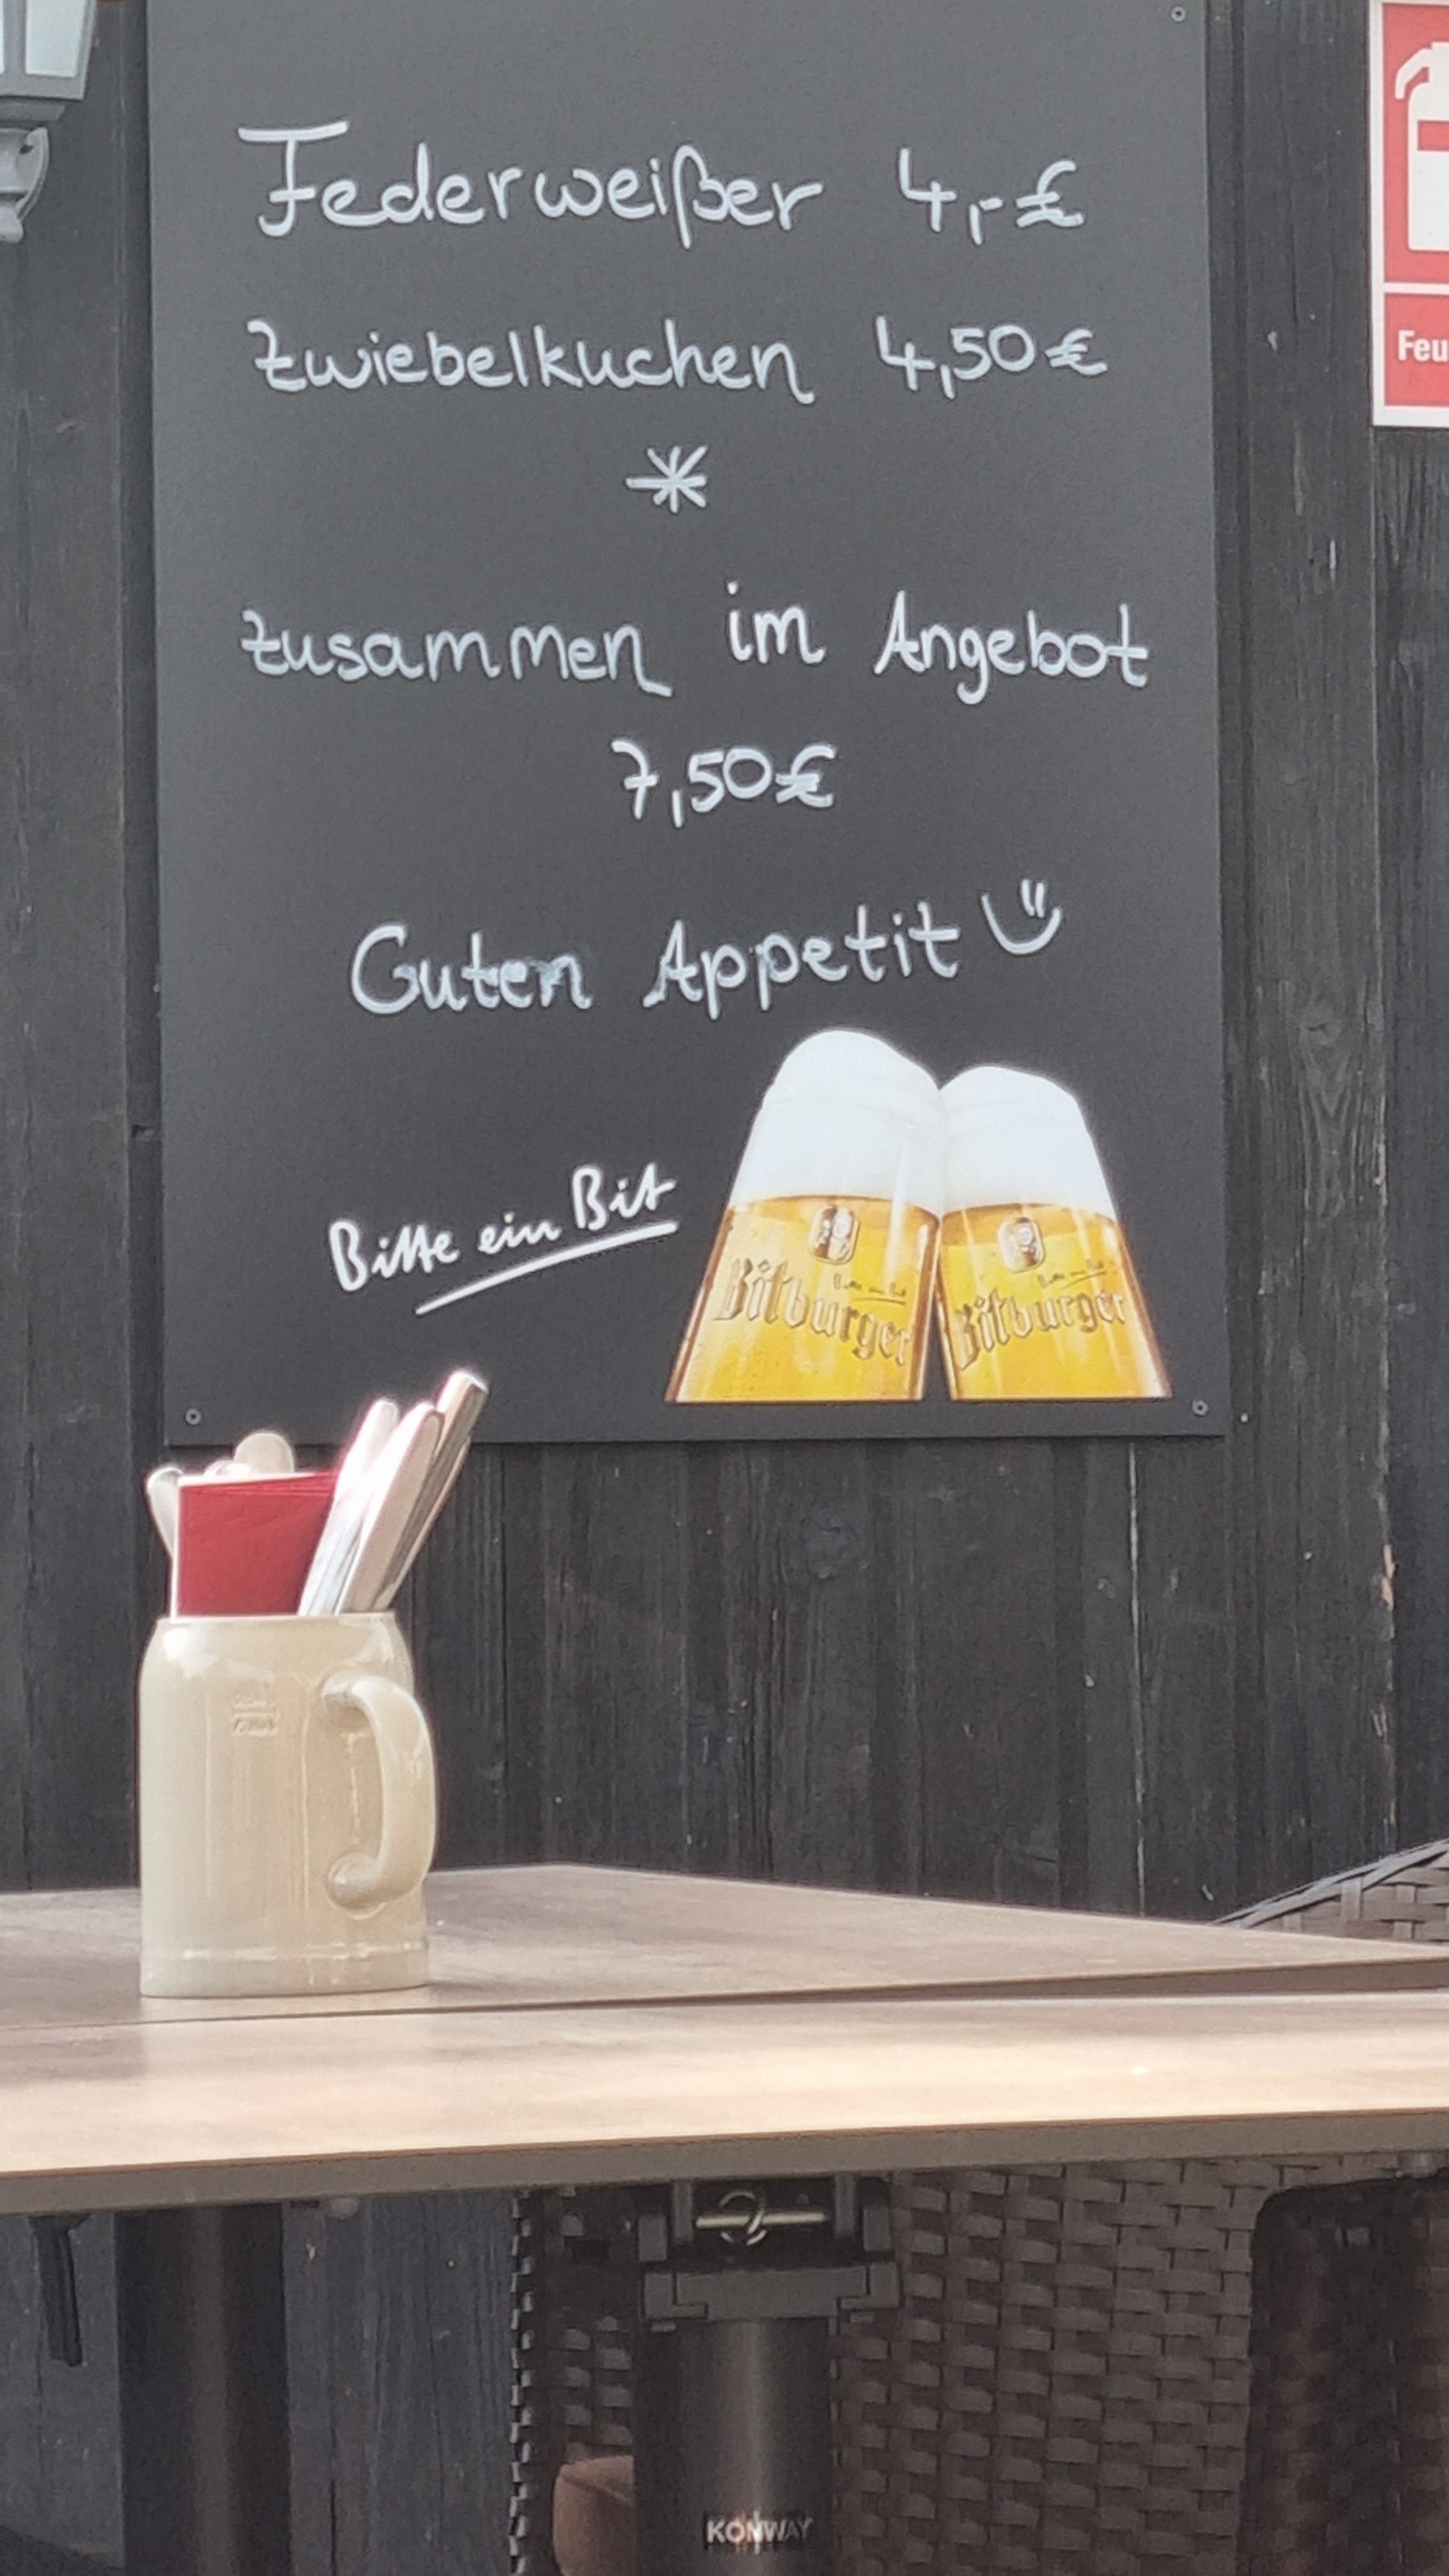 Federweißer 4,-€
Zwiebelkuchen 4,50€
*
zusammen im Angebot
7,50€
Guten Appetit
Bitte ein Bit
Bitburger
Bitte ein Bit
Bitburger
Bitte ein Bit
Feu
KONWAY